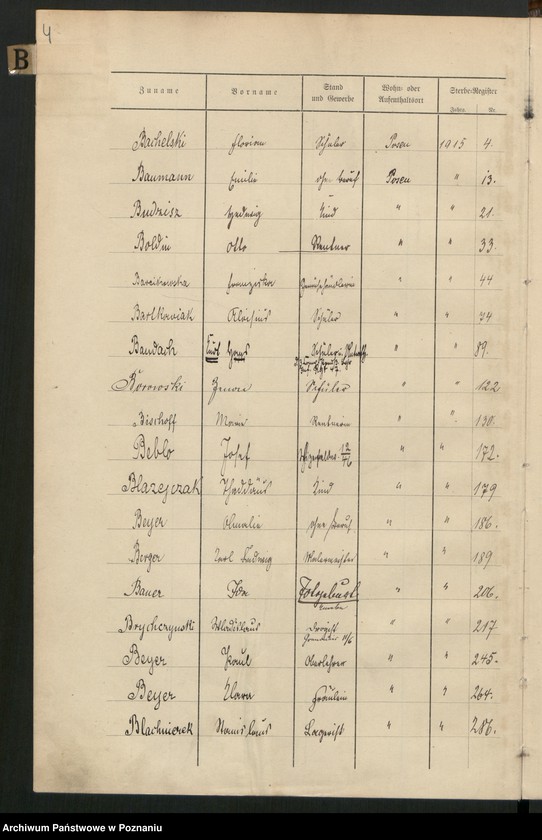 4
B
Zuname Vorname Stand und Gewerbe Wohn- oder Aufenthaltsort Sterbe-Register
Jahrg. Nr.
Bachelski Florian Schüler Posen 1915 4.
Baumann Emilie ohne Beruf Posen " 13.
Budzisz Hedwig Kind " " 21.
Boldin Otto Rentner " " 33.
Franziska " " 44
Bartkowiak Aloisius Schüler " " 74
Bandach Karl Hans Schüler " " 89.
Borowski Zenon Schüler " " 122
Bischoff Marie Rentnerin " " 130.
Beblo Josef 12/46 " " 172.
Blazejczak Thaddäus Kind " " 179
Beyer Amalie ohne Beruf " " 186.
Berger Karl Ludwig Malermeister " " 189
Bauer Totgeburt " " 206.
Brychczynski Wladislaus Drogist 11/6 " " 217
Beyer Paul Oberlehrer " " 245.
Beyer Klara Fräulein " " 264.
Blachnierek Stanislaus Lagerist " " 286.
Archiwum Państwowe w Poznaniu